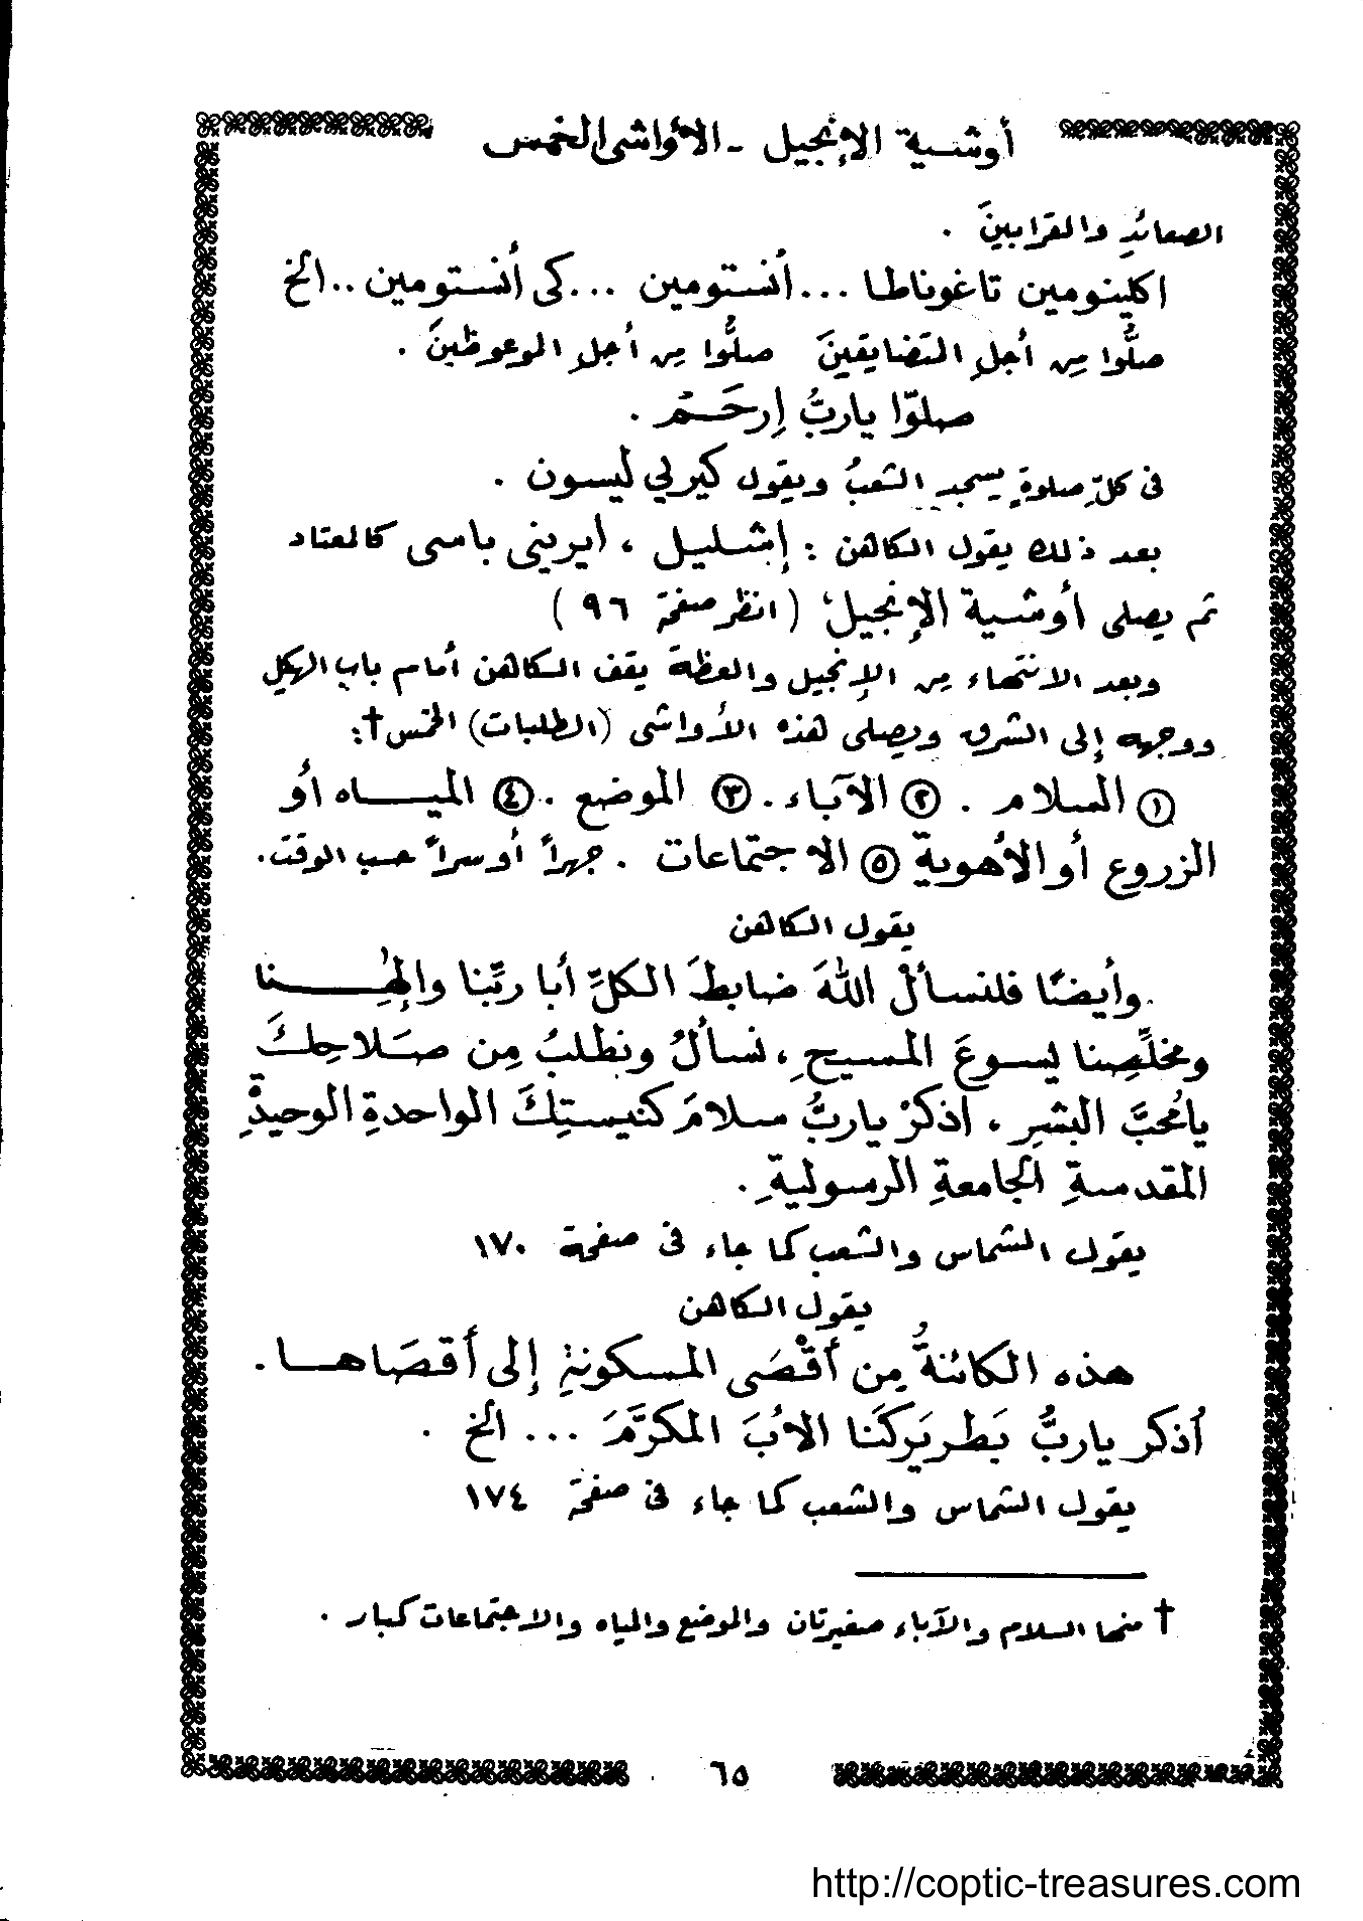 أوشية الإنجيل - الأواشى الخمس
الصعائدِ والقرابينَ .
اكلينومين تاغوناطا ... أنستومين ... كى أنستومين .. الخ
صلُّوا مِن أجلِ المتضايقينَ صلُّوا مِن أجلِ الموعوظينَ .
صلوّا ياربُّ اِرحَم .
فى كلِّ صلوةٍ يسجد الشعبُ ويقول كيرلي ليسون .
بعد ذلك يقول الكاهن : إشليل ، ايرينى باسى كالمعتاد
ثم يصلى أوشية الإنجيل (انظر صفحة ٩٦ )
وبعد الانتهاء مِن الإنجيل والعظة يقف الكاهن أمام باب الهيكل
ووجهه إلى الشرق ويصلى هذه الأواشى (الطلبات) الخمس†:
١ السلام . ٢ الآباء . ٣ الموضع . ٤ المياه أو
الزروع أو الأهوية ٥ الاجتماعات . جهراً أو سراً حسب الوقت .
يقول الكاهن
وأيضًا فلنسألْ اللهَ ضابطَ الكلِّ أبا ربِّنا وإلهِنا
ومخلِّصِنا يسوعَ المسيحِ ، نسألُ ونطلبُ مِن صَلاحِكَ
يامُحبَّ البشرِ ، اذكرْ ياربُّ سلامَ كنيستِكَ الواحدةِ الوحيدةِ
المقدسةِ الجامعةِ الرسوليةِ .
يقول الشماس والشعب كما جاء فى صفحة ١٧٠
يقول الكاهن
هذه الكائنةُ مِن أقْصَى المسكونةِ إلى أقصَاها .
أذكر ياربُّ بَطريَركَنا الأبَ المكرَّمَ ... الخ .
يقول الشماس والشعب كما جاء فى صفحة ١٧٤
† منها السلام والآباء صغيرتان والموضع والمياه والاجتماعات كبار .
٦٥
http://coptic-treasures.com